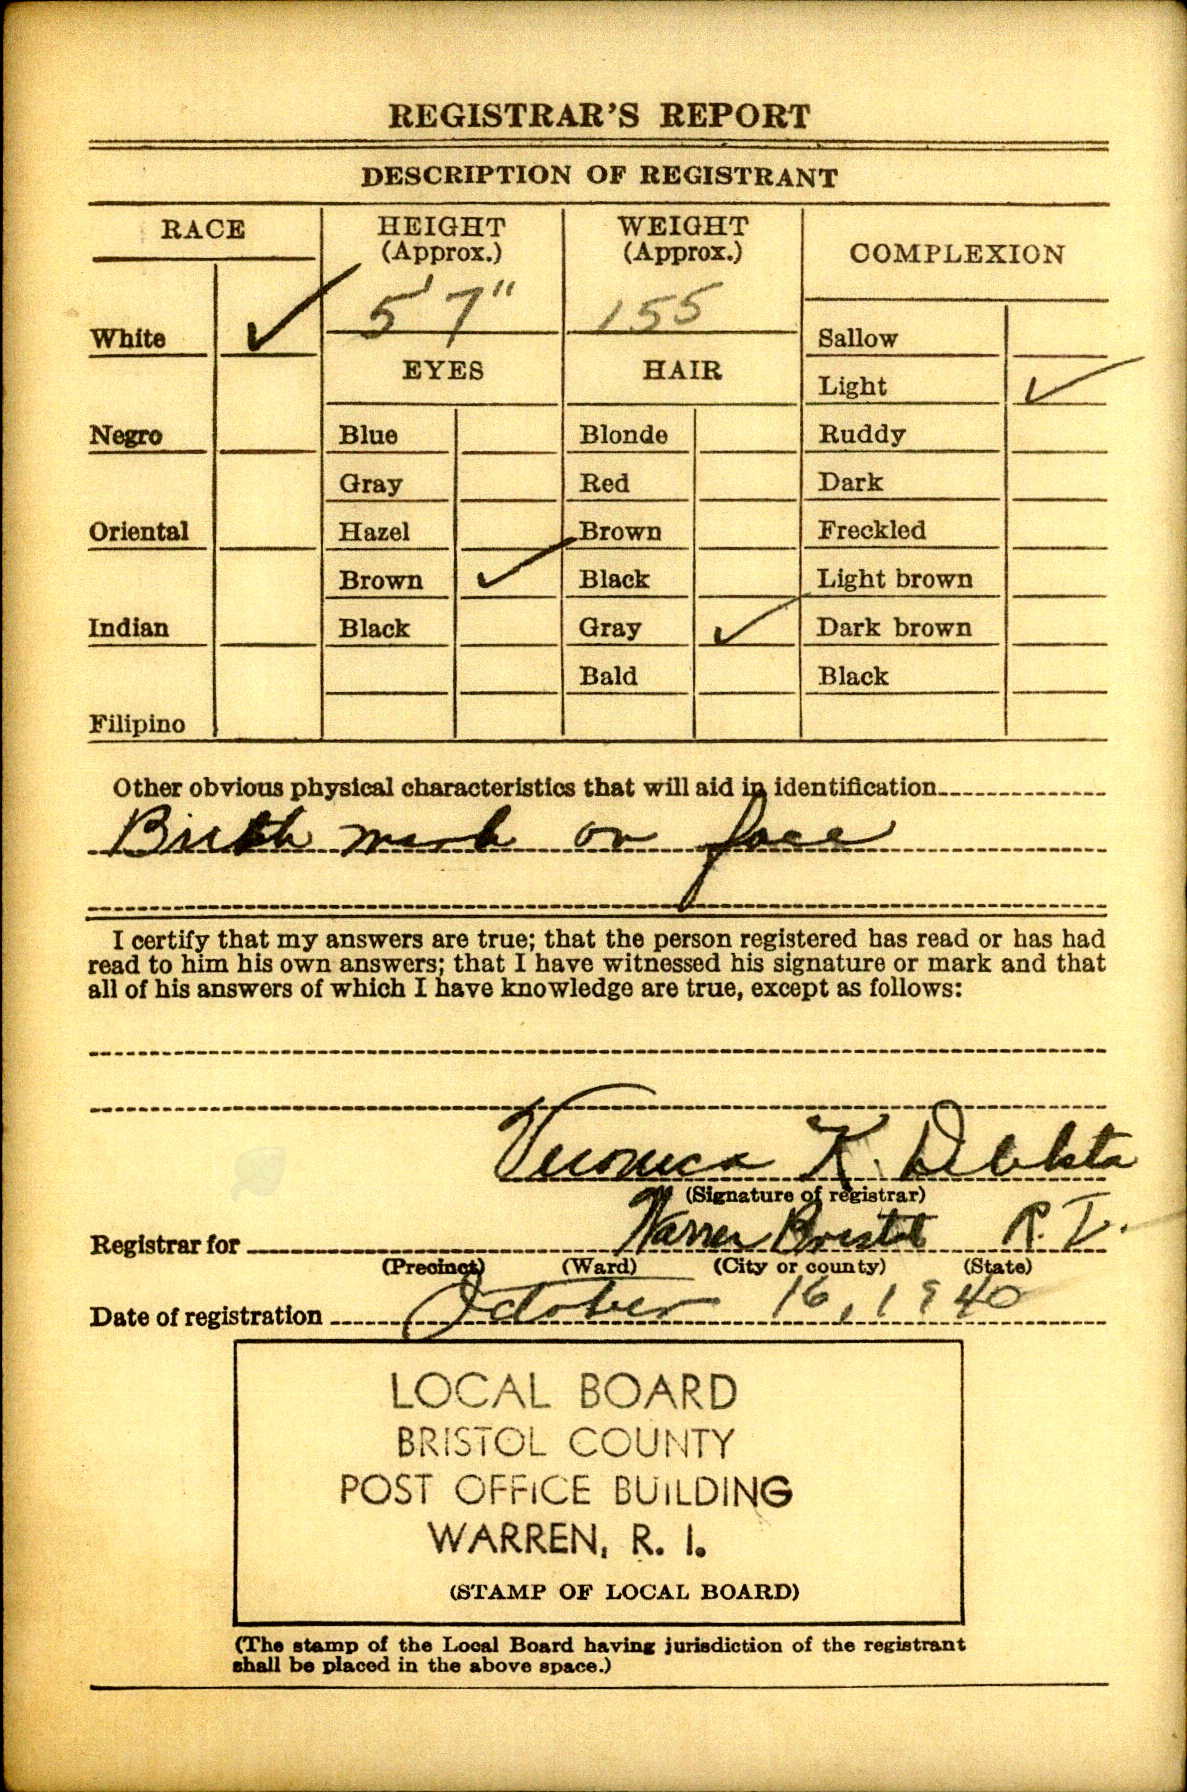 REGISTRAR'S REPORT
DESCRIPTION OF REGISTRANT
RACE HEIGHT (Approx.) WEIGHT (Approx.) COMPLEXION
White ✓ 5' 7" 155 Sallow
EYES HAIR Light ✓
Negro Blue Blonde Ruddy
Gray Red Dark
Oriental Hazel Brown Freckled
Brown ✓ Black Light brown
Indian Black Gray ✓ Dark brown
Bald Black
Filipino
Other obvious physical characteristics that will aid in identification
Birth mark on face
I certify that my answers are true; that the person registered has read or has had
read to him his own answers; that I have witnessed his signature or mark and that
all of his answers of which I have knowledge are true, except as follows:
Veronica K.
(Signature of registrar)
Registrar for Warren Bristol R.I.
(Precinct) (Ward) (City or county) (State)
Date of registration October 16, 1940
LOCAL BOARD
BRISTOL COUNTY
POST OFFICE BUILDING
WARREN, R. I.
(STAMP OF LOCAL BOARD)
(The stamp of the Local Board having jurisdiction of the registrant
shall be placed in the above space.)